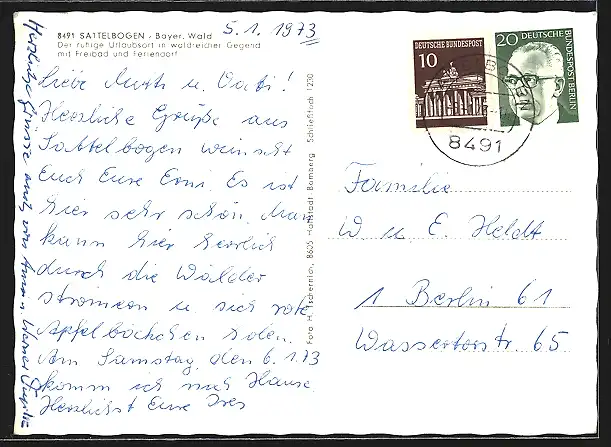 5.1.1973
8491 SATTELBOGEN - Bayer. Wald
Der ruhige Urlaubsort in waldreicher Gegend
mit Freibad und Feriendorf
Liebe Mutti u. Vati!
Herzliche Grüße aus
Sattelbogen wünscht
Euch Eure Erni. Es ist
hier sehr schön. Man
kann hier herrlich
durch die Wälder
stromern u. sich rote
Apfelbäckchen holen.
Am Samstag, den 6.1.73
komm ich nach Hause.
Herzlichst Eure
Herzliche Grüsse auch von
Foto H. Tschernich, 8605 Hallstadt - Bamberg Schließfach 1230
DEUTSCHE BUNDESPOST
10
20 DEUTSCHE
BUNDESPOST BERLIN
8491
Familie
W u. E. Heldt
1 Berlin 61
Wassertorstr. 65